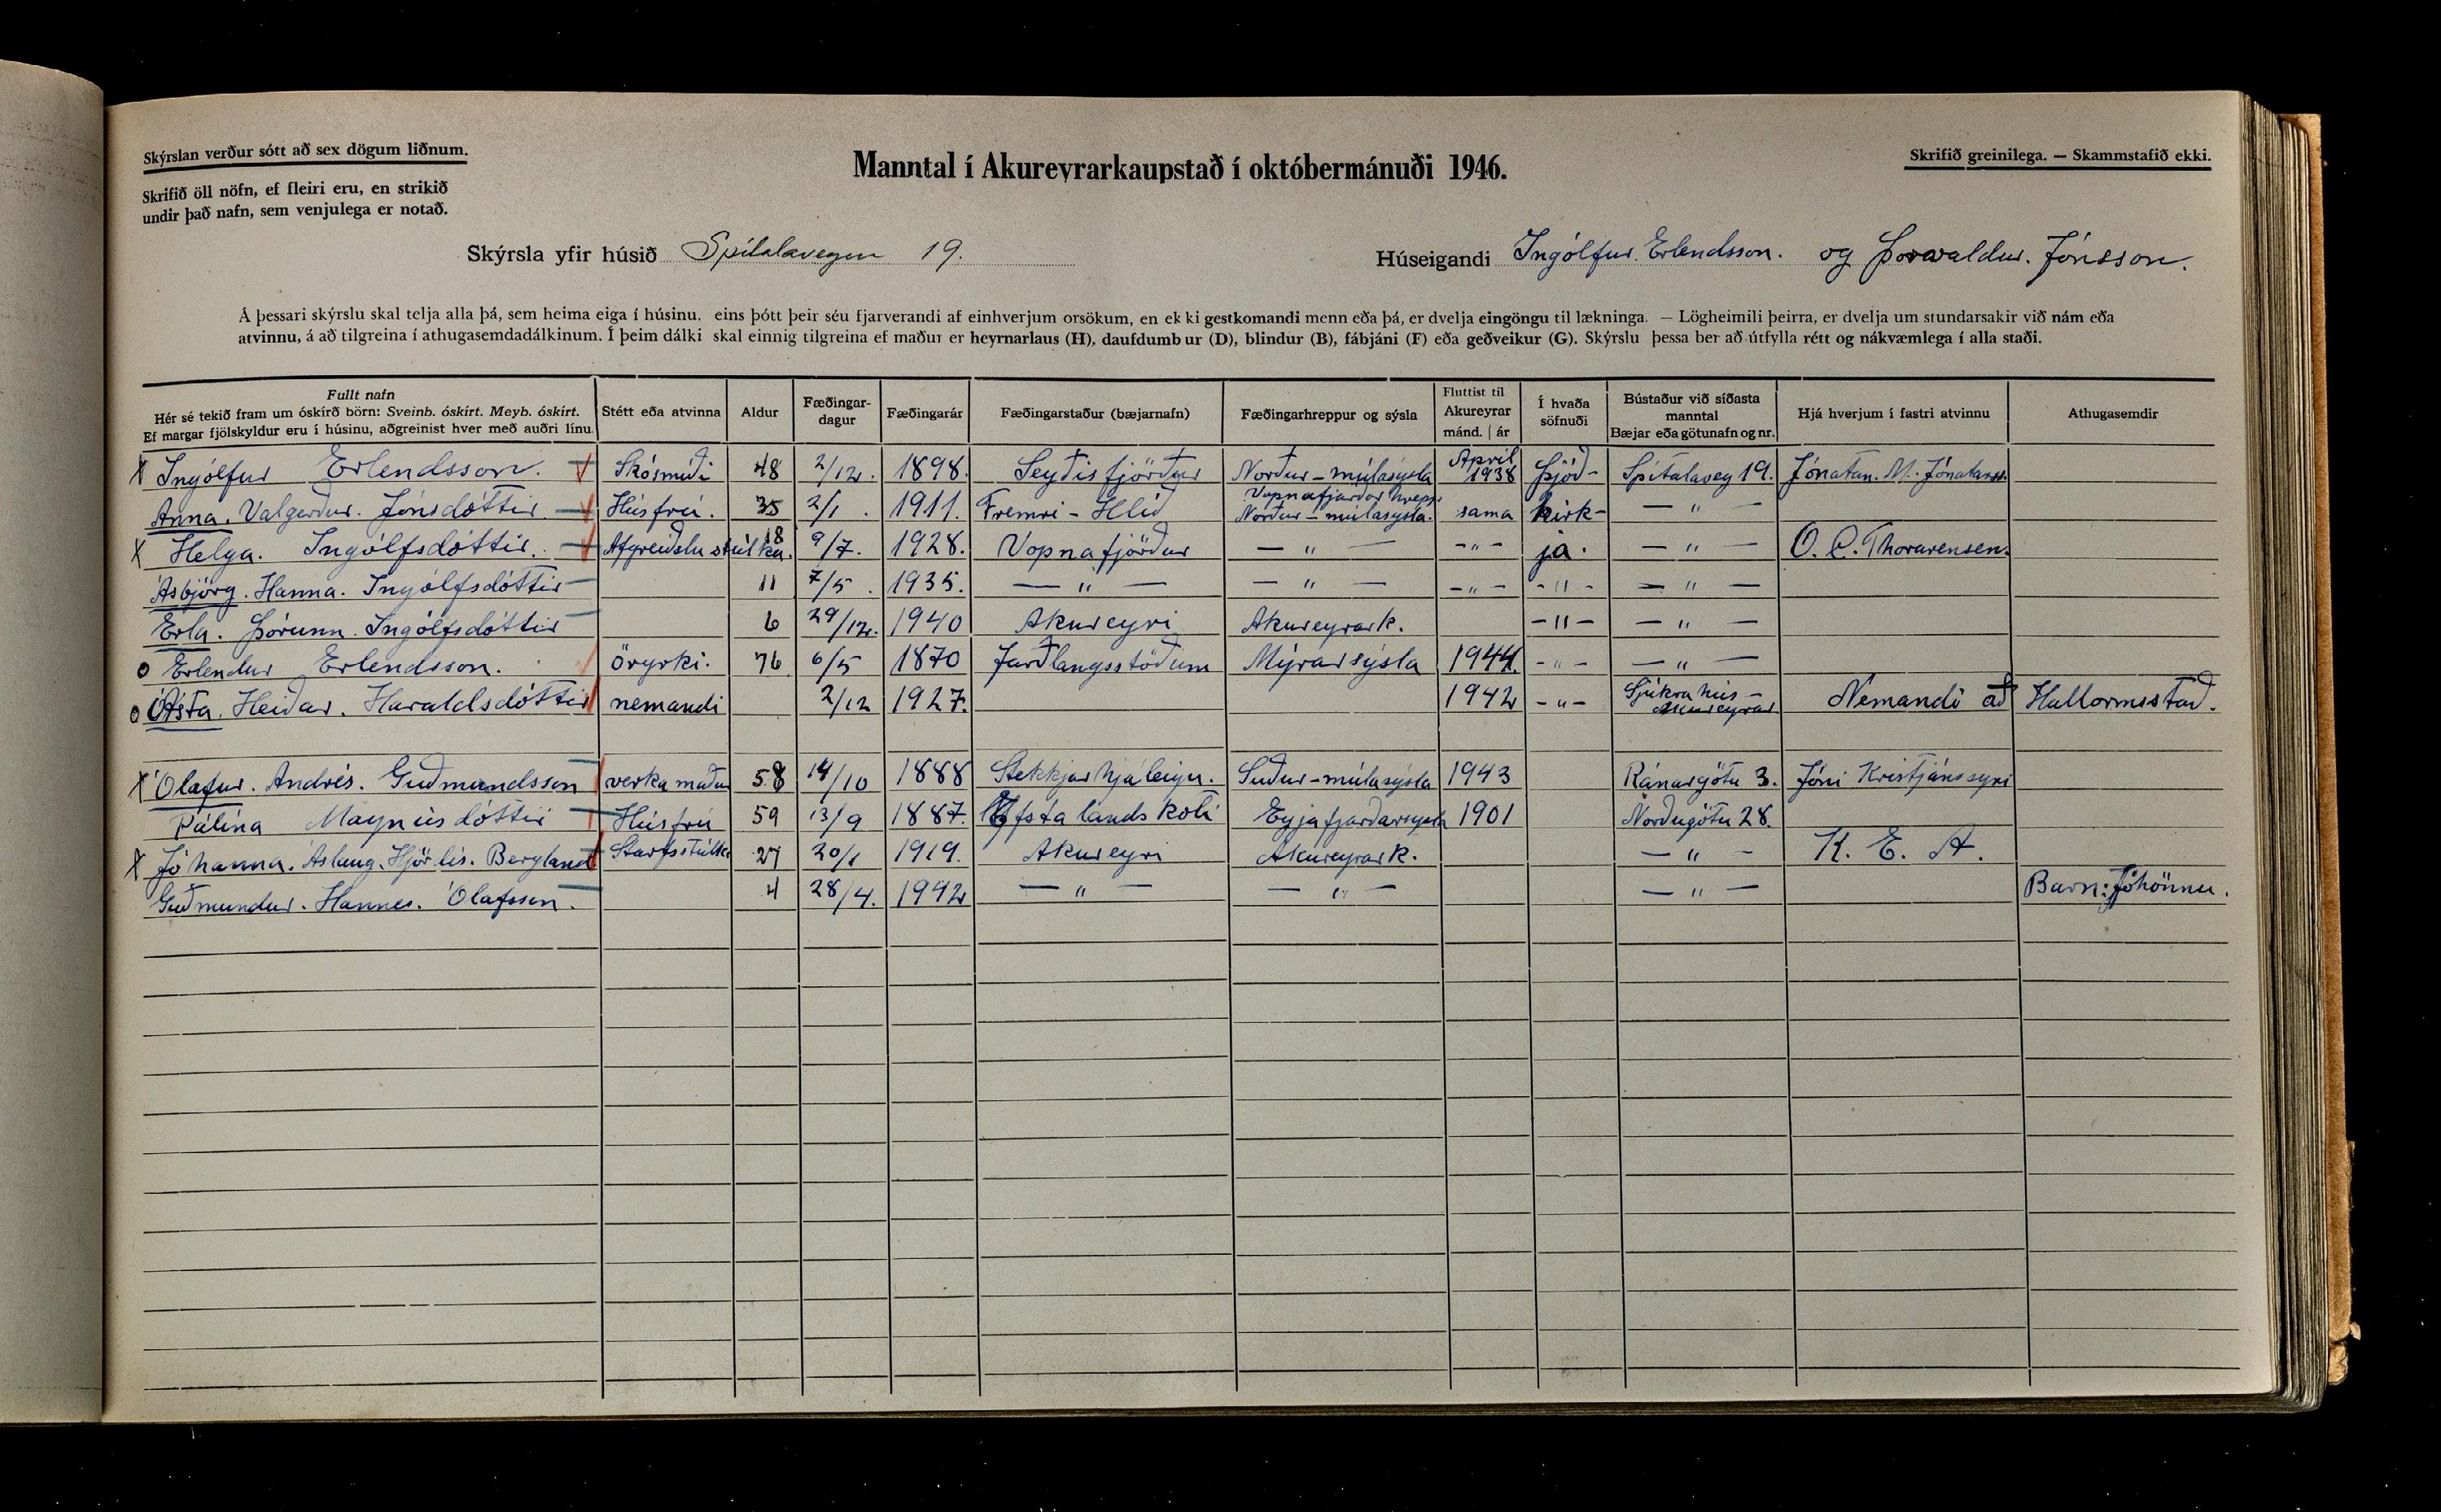 Skýrslan verður sótt að sex dögum liðnum.
Manntal í Akureyrarkaupstað í októbermánuði 1946.
Skrifið greinilega. — Skammstafið ekki.
Skrifið öll nöfn, ef fleiri eru, en strikið
undir það nafn, sem venjulega er notað.
Skýrsla yfir húsið Spítalavegur 19.
Húseigandi Ingólfur Erlendsson. og Þorvaldur. Jónsson.
Á þessari skýrslu skal telja alla þá, sem heima eiga í húsinu, eins þótt þeir séu fjarverandi af einhverjum orsökum, en ekki gestkomandi menn eða þá, er dvelja eingöngu til lækninga. — Lögheimili þeirra, er dvelja um stundarsakir við nám eða
atvinnu, á að tilgreina í athugasemdadálkinum. Í þeim dálki skal einnig tilgreina ef maður er heyrnarlaus (H), daufdumbur (D), blindur (B), fábjáni (F) eða geðveikur (G). Skýrslu þessa ber að útfylla rétt og nákvæmlega í alla staði.
Fullt nafn
Hér sé tekið fram um óskírð börn: Sveinb. óskírt. Meyb. óskírt.
Ef margar fjölskyldur eru í húsinu, aðgreinist hver með auðri línu.
Stétt eða atvinna
Aldur
Fæðingar-
dagur
Fæðingarár
Fæðingarstaður (bæjarnafn)
Fæðingarhreppur og sýsla
Fluttist til
Akureyrar
mánd. | ár
Í hvaða
söfnuði
Bústaður við síðasta
manntal
Bæjar eða götunafn og nr.
Hjá hverjum í fastri atvinnu
Athugasemdir
X Ingólfur Erlendsson. Skósmiði 48 2/12. 1898. Seyðisfjörður Norður-múlasýsla Apríl 1938 Þjóð- Spítalaveg 19. Jónatan. M. Jónatanss.
Anna. Valgerður. Jónsdóttir Húsfrú. 35 2/1. 1911. Fremri-Hlíð Vopnafjarðar hrepp. Norður-múlasýsla. sama kirk- — " —
X Helga. Ingólfsdóttir. Afgreiðslustúlka. 18 9/7. 1928. Vopnafjörður — " — - " - ja. — " — O. C. Thorarensen.
Ásbjörg. Hanna. Ingólfsdóttir 11 7/5. 1935. — " — — " — - " - - " - — " —
Erla. Þórunn. Ingólfsdóttir 6 29/12. 1940 Akureyri Akureyrark. - " - — " —
o Erlendur Erlendsson. öryrki. 76 6/5 1870 Jarðlangsstöðum Mýrarsýsla 1944. - " - — " —
o Ásta. Heiðar. Haraldsdóttir nemandi 2/12 1927. 1942 - " - Sjúkrahús- Akureyrar Nemandi að Hallormsstað.
X Ólafur. Andrés. Guðmundsson verkamaður 58 14/10 1888 Stekkjarhjáleigu. Suður-múlasýsla 1943 Ránargötu 3. Jóni Kristjánssyni
Pálína Magnúsdóttir Húsfrú 59 13/9 1887. Efstalandskoti Eyjafjarðarsýsla 1901 Norðugötu 28.
X Jóhanna. Áslaug. Hjördís. Bergland Starfsstúlka 27 20/1 1919. Akureyri Akureyrark. — " — K. E. A.
Guðmundur. Hannes. Ólafsson. 4 28/4. 1942 — " — — " — — " — Barn: Jóhönnu.